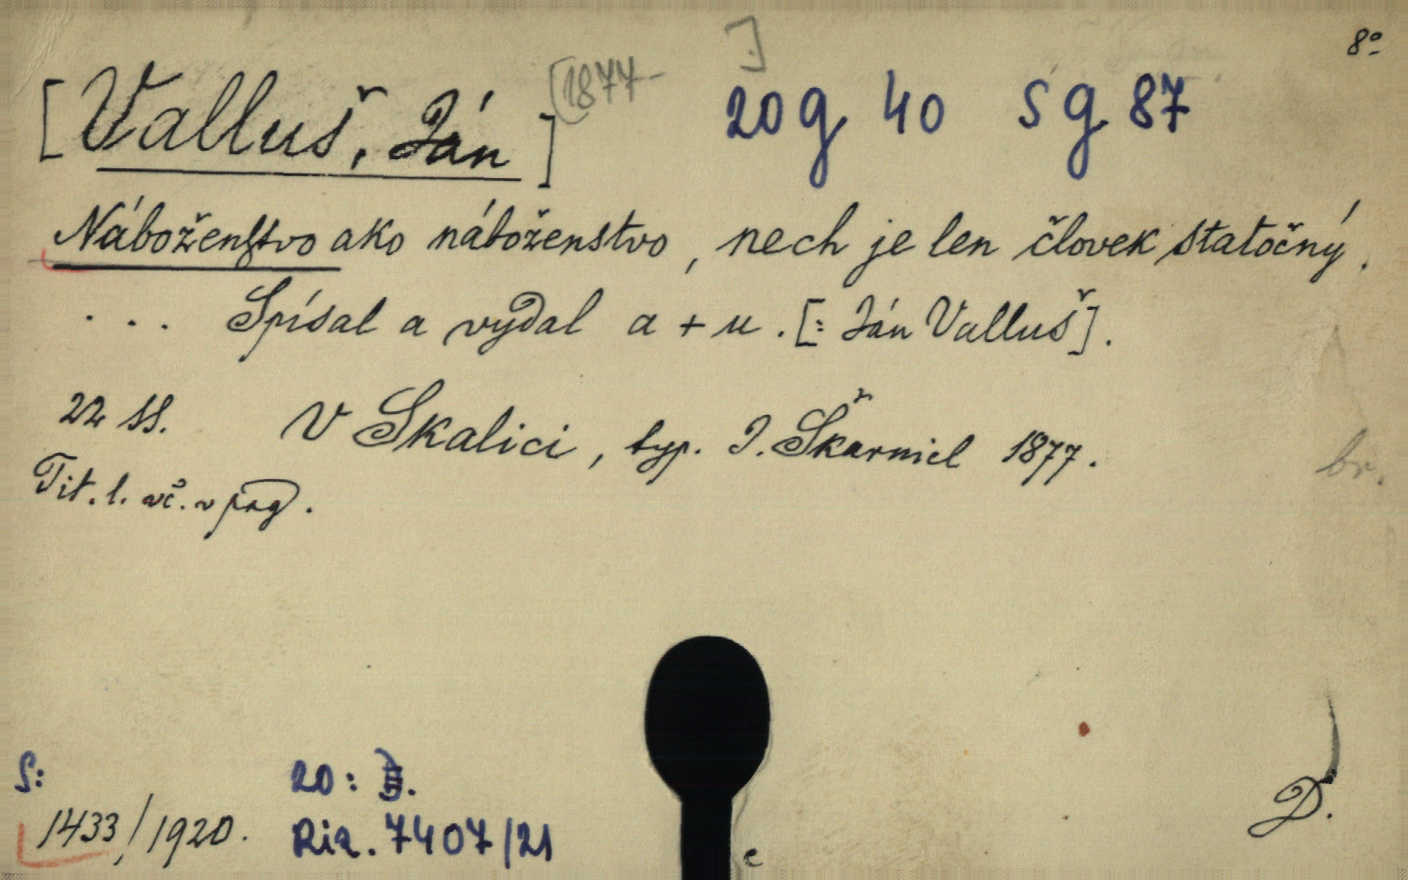 8º
[Valluš, Ján] [1877- ] 20 g 40 S g 87
Náboženstvo ako náboženstvo, nech je len človek statočný.
... Spísal a vydal a + u. [: Ján Valluš].
22 ss. V Skalici, typ. J. Škarnicl 1877.
br.
Tit. l. vč. v pag.
S: 20: II.
1433/1920. Ria. 7407/21
D.
c